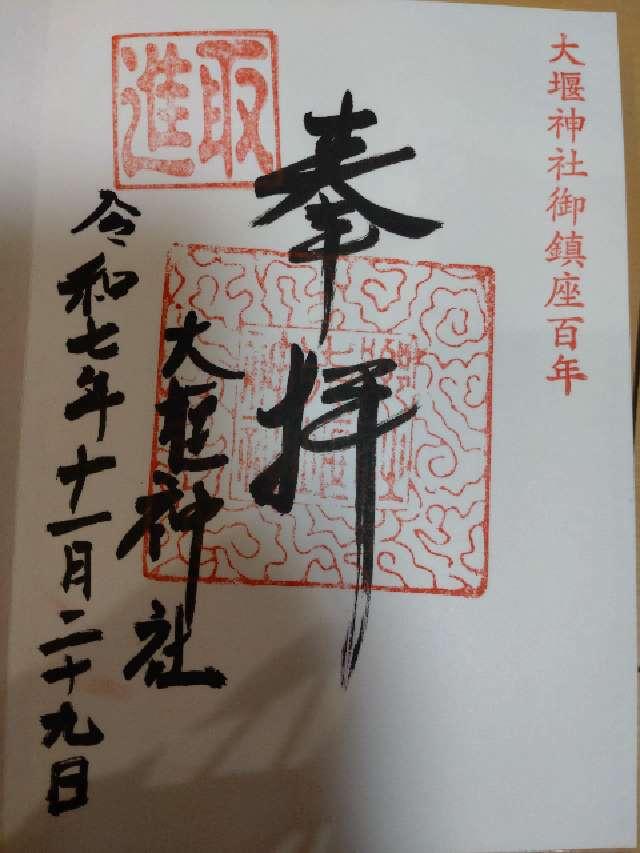 大堰神社御鎮座百年
奉拝
大堰神社
令和七年十一月二十九日